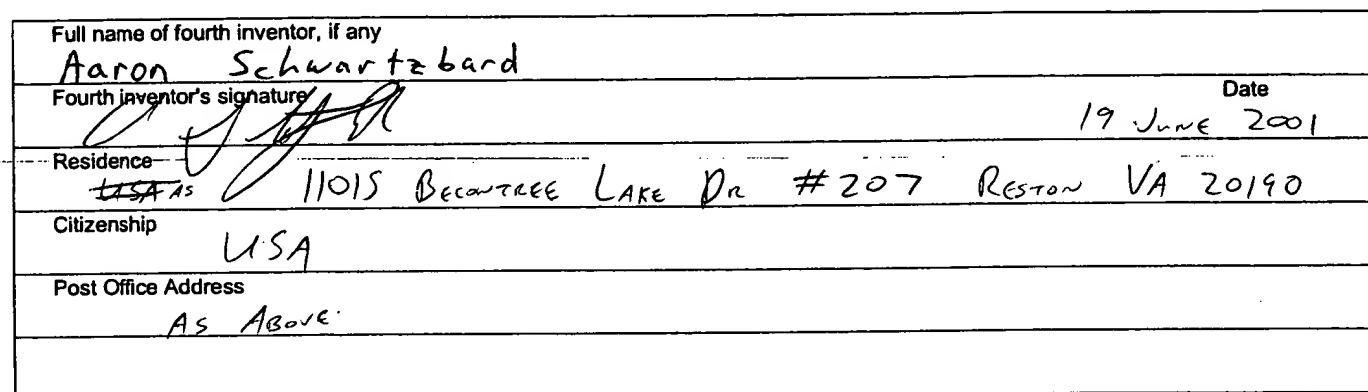 Full name of fourth inventor, if any
Aaron Schwartzbard
Fourth inventor's signature Date
19 June 2001
Residence
USA AS 11015 Becontree Lake Dr #207 Reston VA 20190
Citizenship
USA
Post Office Address
As Above.